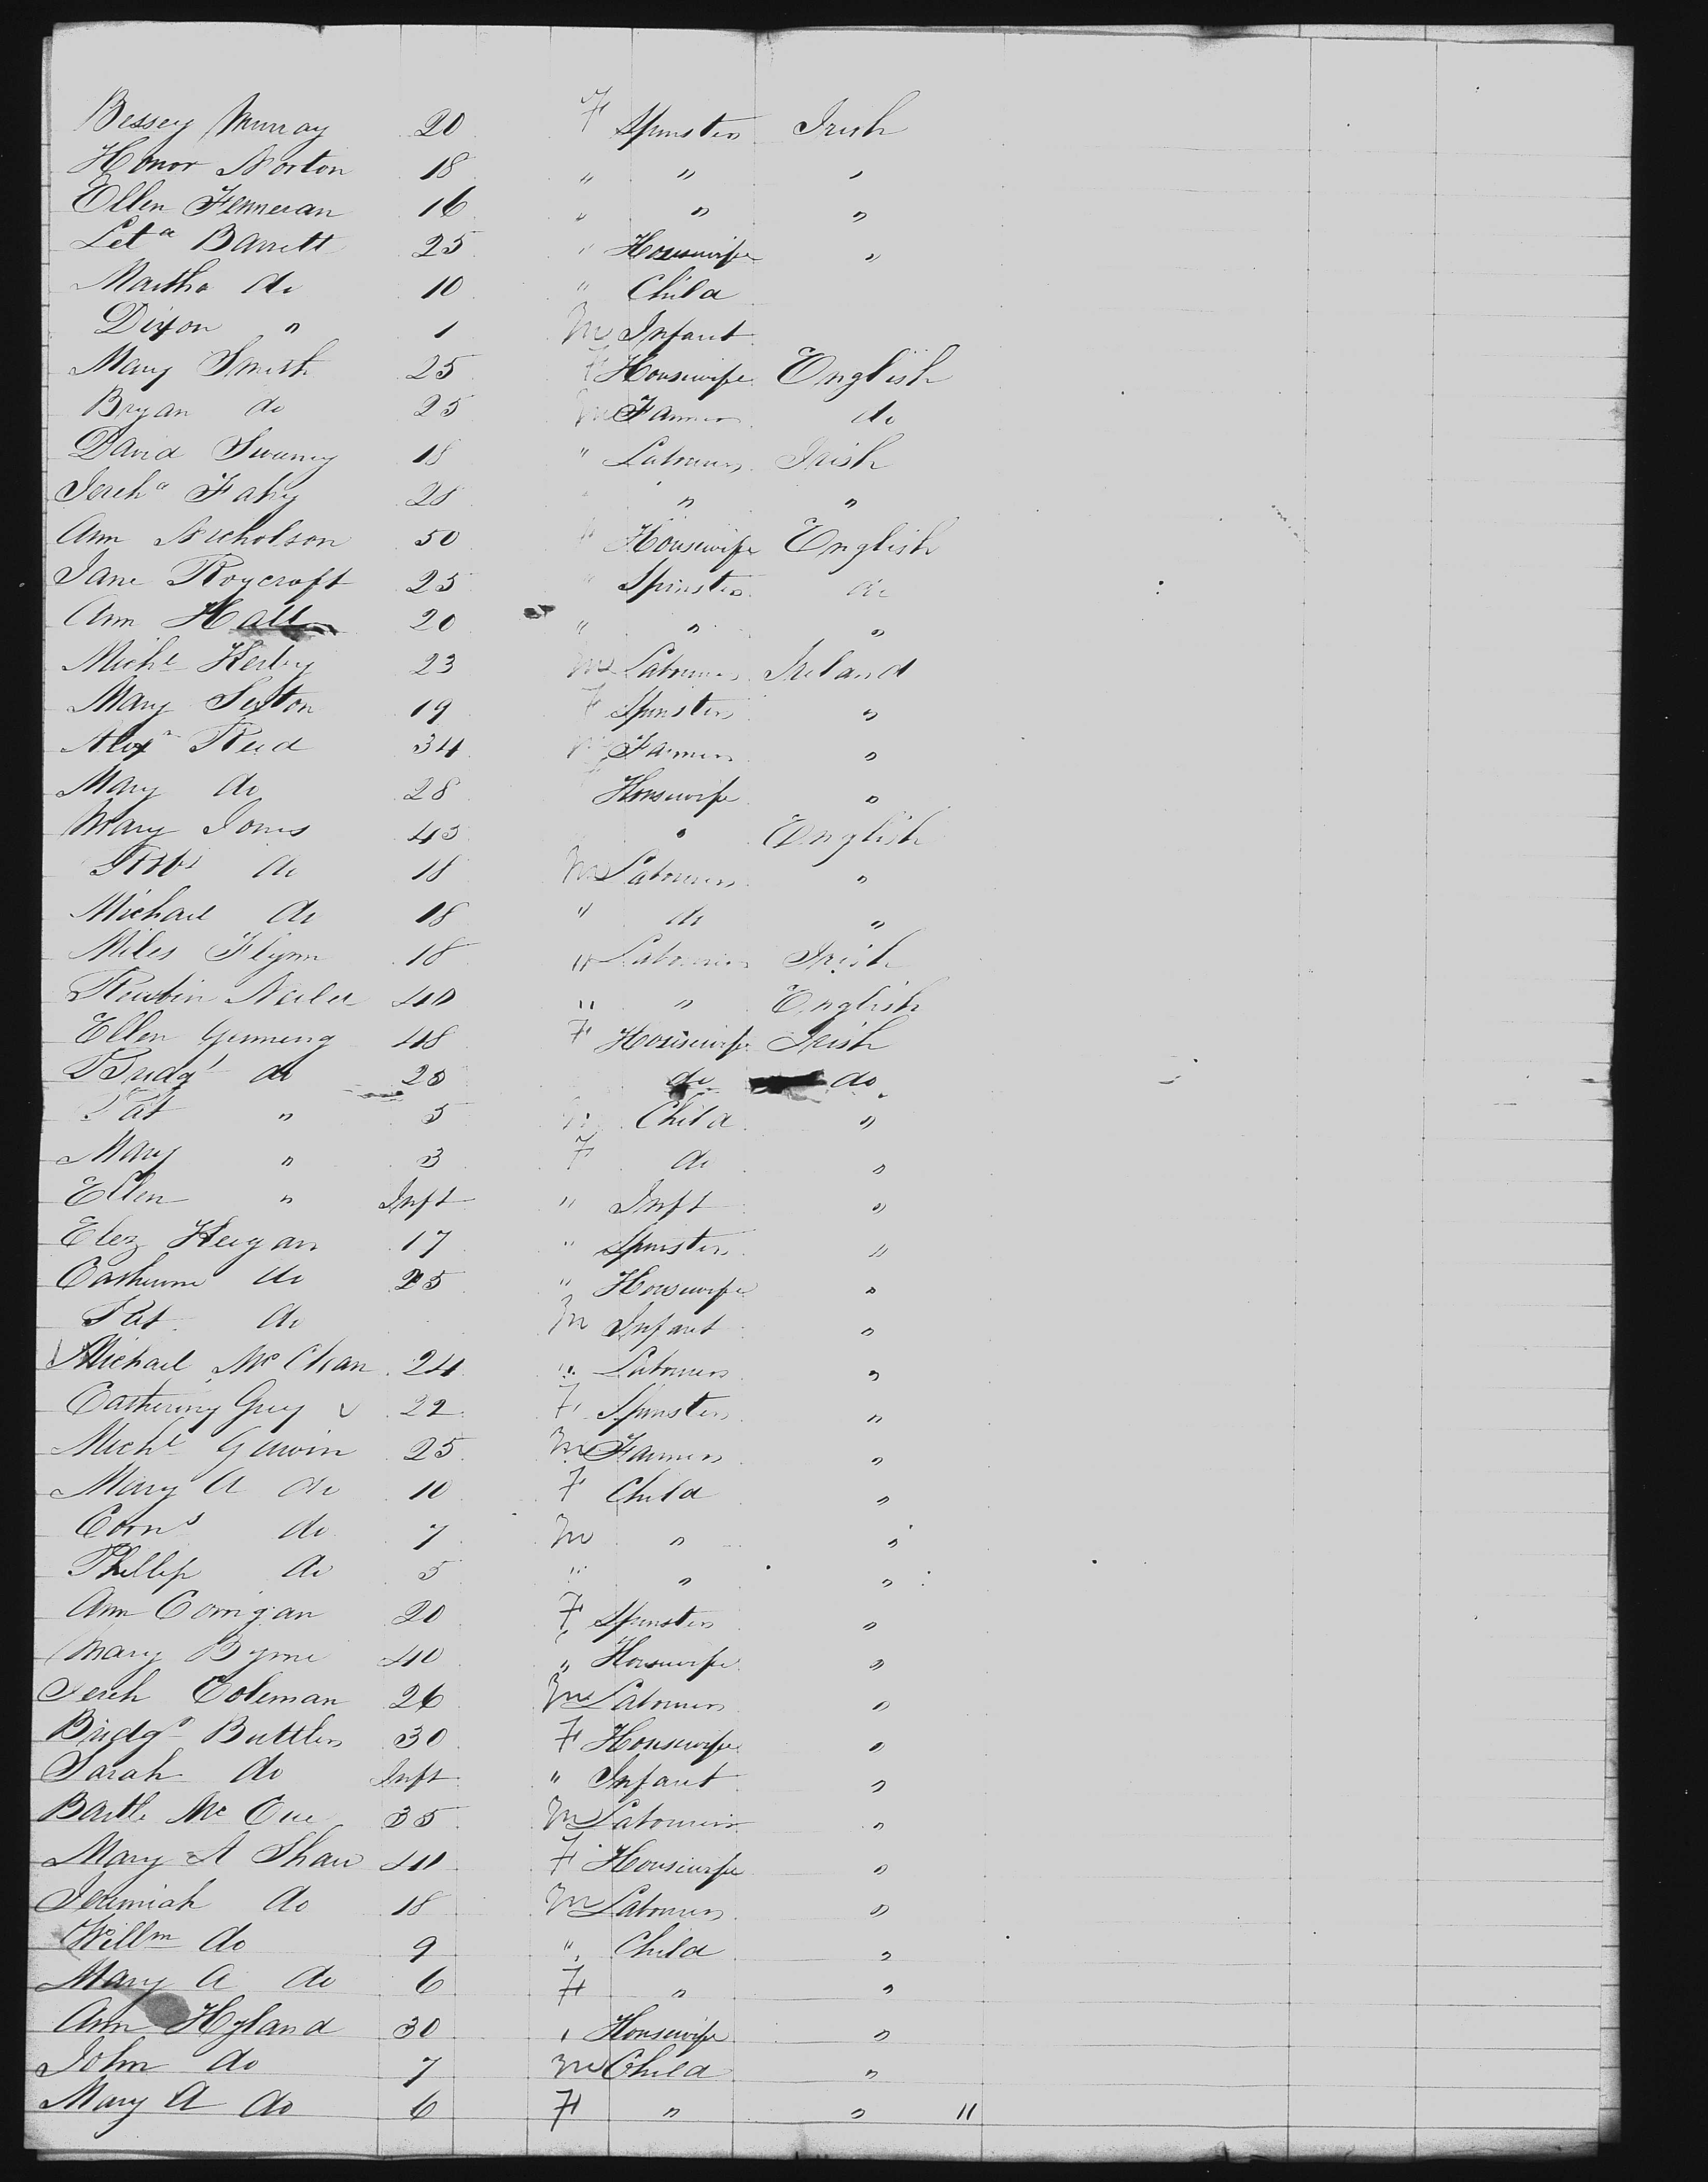 Bessey Murray 20 F Spinster Irish
Honor Norton 18 " " "
Ellen Fenneran 16 " " "
Leta Barrett 25 " Housewife "
Martha do 10 " Child
Dixon " 1 M Infant
Mary Smith 25 F Housewife English
Bryan do 25 M Farmer do
David Swaney 18 " Labourer Irish
Fahy 28 " " "
Ann Nicholson 50 " Housewife English
Jane Roycroft 25 " Spinster do
Ann Hall 20 " " "
Michl Kerby 23 M Labourer Ireland
Mary Sexton 19 F Spinster "
Alexr Reed 34 M Farmer "
Mary do 28 Housewife "
Mary Jones 43 " English
Robt do 18 M Labourer "
Michael do 18 " do "
Miles Flynn 18 " Labourer Irish
Reubin 40 " " English
Ellen Genning 48 F Housewife Irish
Bridgt do 25 do do
Pat " 5 M Child "
Mary " 3 F do "
Ellen " Inft " Inft "
Elez Keegan 17 " Spinster "
Catherine do 25 " Housewife "
Pat do M Infant "
Michael McClean 24 " Labourer "
Catherine Grey 22 F Spinster "
Michl Gawin 25 M Farmer "
Mary A do 10 F Child "
Corns do 7 M " "
Phillip do 5 " " "
Ann Corrigan 20 F Spinster "
Mary Byrne 40 " Housewife "
Jereh Coleman 26 M Labourer "
Bridgt Buttler 30 F Housewife "
Sarah do Inft " Infant "
Bartle McCue 35 M Labourer "
Mary A Shaw 40 F Housewife "
Jeremiah do 18 M Labourer "
Willm do 9 " Child "
Mary A do 6 F " "
Ann Hyland 30 " Housewife "
John do 7 M Child "
Mary A do 6 F " " "